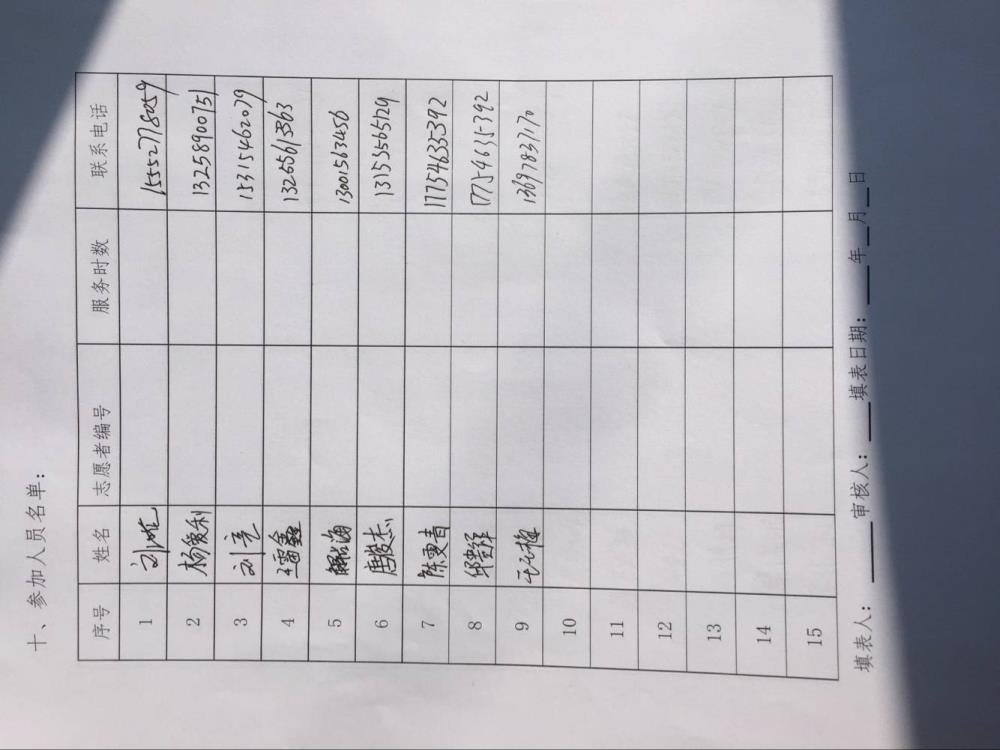 十、参加人员名单：
序号 姓名 志愿者编号 服务时数 联系电话
1 刘 15552778059
2 杨爱利 13258900751
3 刘亮 15315462079
4 王雷鑫 13265613363
5 13001563456
6 唐俊杰 13153565129
7 陈雯青 17754635392
8 邱 17754635392
9 王 13697837170
10
11
12
13
14
15
填表人： 审核人： 填表日期： 年 月 日